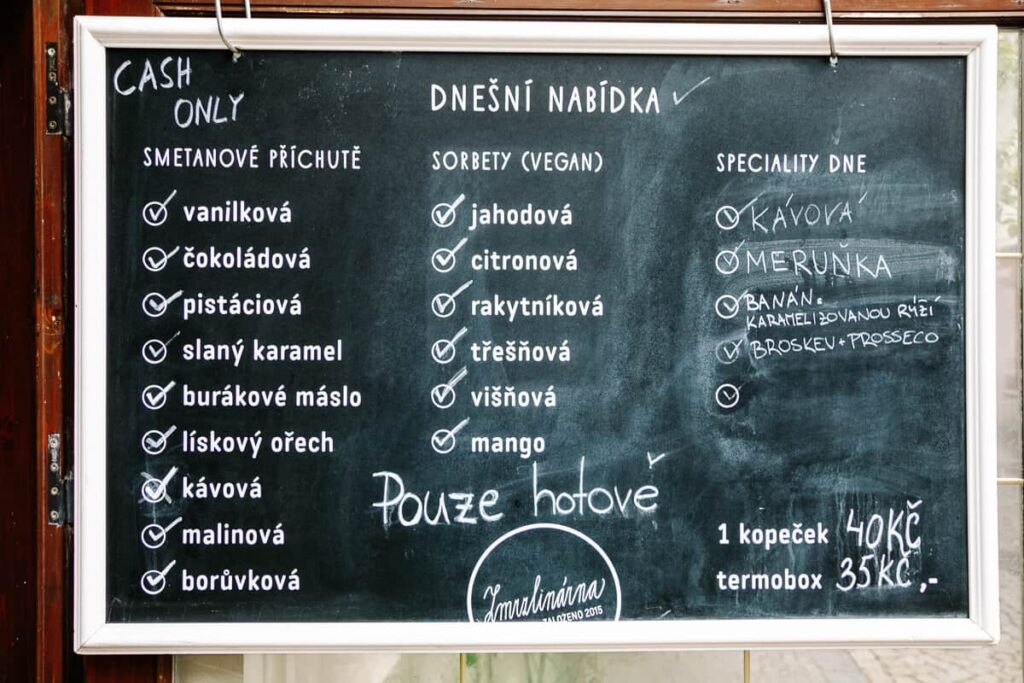 CASH
ONLY
DNEŠNÍ NABÍDKA
SMETANOVÉ PŘÍCHUTĚ
vanilková
čokoládová
pistáciová
slaný karamel
burákové máslo
lískový ořech
kávová
malinová
borůvková
SORBETY (VEGAN)
jahodová
citronová
rakytníková
třešňová
višňová
mango
SPECIALITY DNE
KÁVOVÁ
MERUŇKA
BANÁN s
KARAMELIZOVANOU RÝŽÍ
BROSKEV + PROSSECO
Pouze hotově
1 kopeček 40KČ
termobox 35KČ,-
Zmrzlinárna
ZALOŽENO 2015